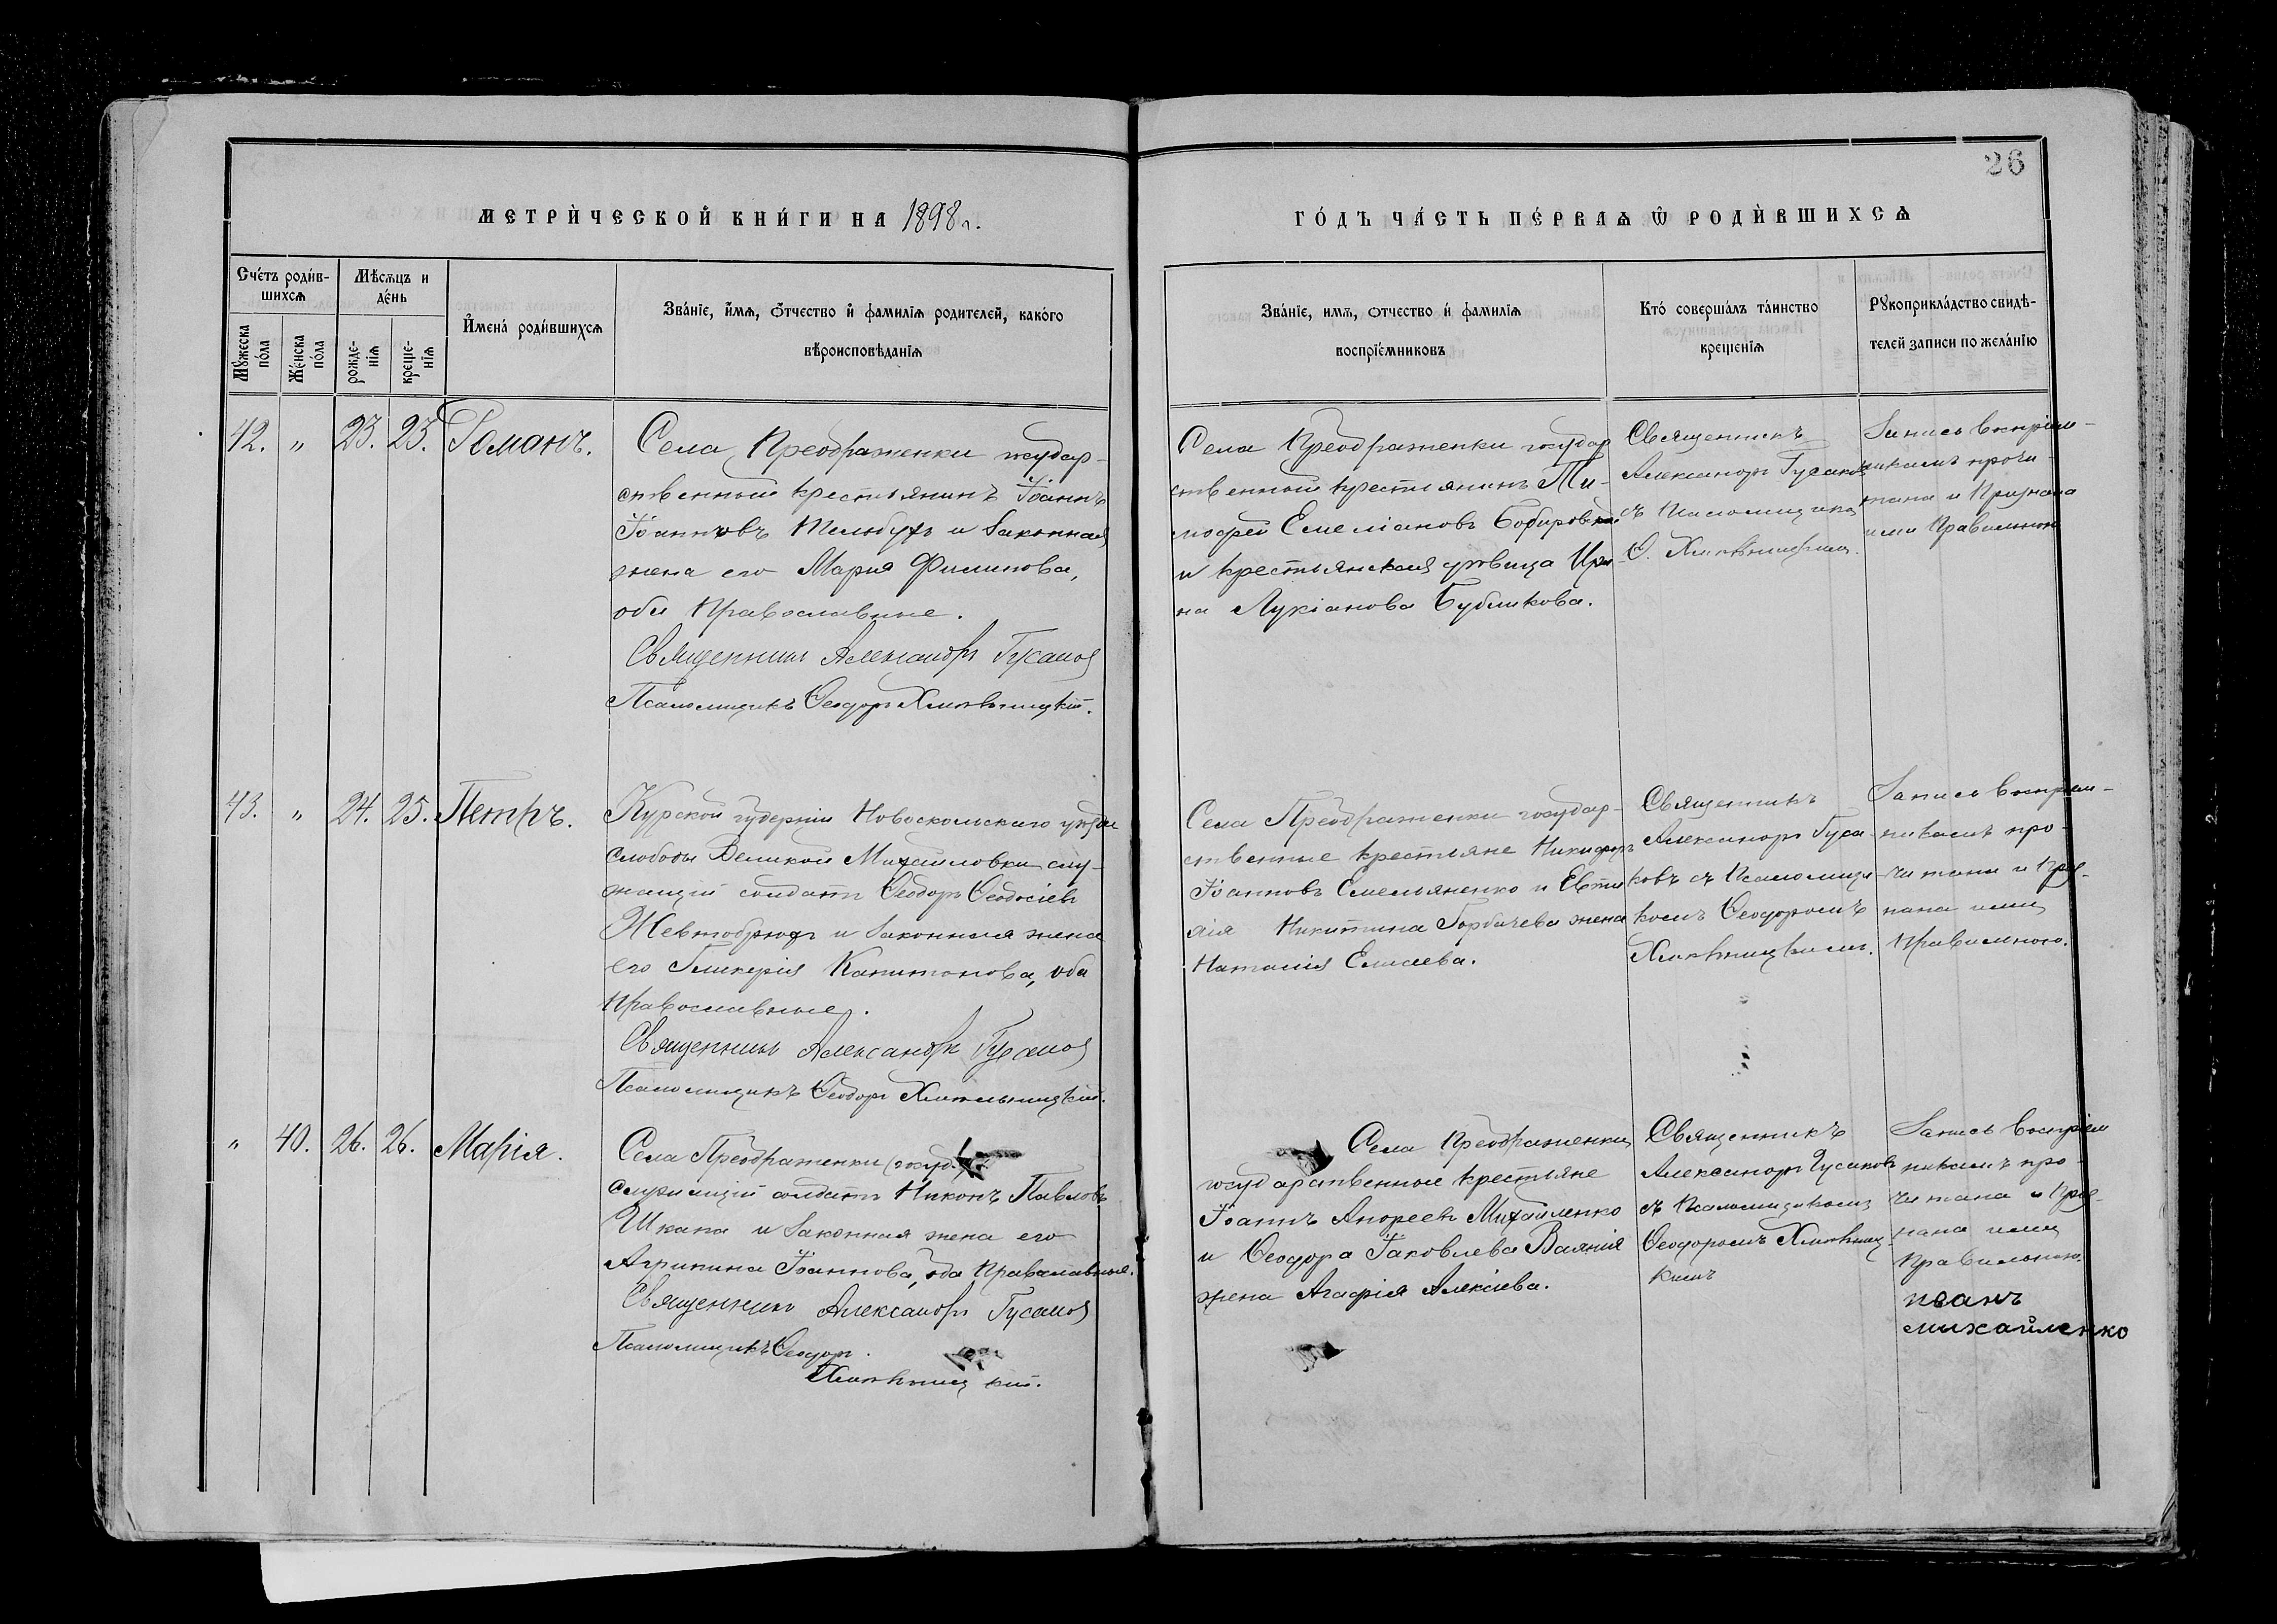 26
МЕТРИ́ЧЕСКОЙ КНИ́ГИ НА 1898 г.
ГО́ДЪ ЧА́СТЬ ПЕ́РВАѦ Ѿ РОДИ́ВШИХСѦ
Сче́тъ роди́в-
шихсѧ
Мѣсѧцъ и
де́нь
Мꙋжеска
по́ла
Же́нска
по́ла
рожде-
нїѧ
креще-
нїѧ
И҆мена́ роди́вшихсѧ
Зва́нїе, и҆́мѧ, ѻ҆́тчество и҆ фамилїѧ родителей, како́го
вѣроисповѣданїѧ
Зва́нїе, имѧ, отчество и҆ фамилїѧ
воспрїе́мниковъ
Кто́ соверша́лъ та́инство
крещенїѧ
Рꙋкоприкла́дство свидѣ-
телей записи по жела́нїю
42. " 23. 25. Романъ.
Села Преображенки государ-
ственный крестьянинъ Іоаннъ
Іоанновъ и законная
жена его Марія Филипова,
оба Православные.
Священникъ Александръ Гусаков
Псаломщикъ Ѳеодоръ Хмельницкій.
Села Преображенки государ
ственный крестьянинъ Ти-
мофей Емеліановъ
и крестьянская дѣвица Ири-
на Лукіанова Бубликова.
Священникъ
Александръ Гусаков
съ Псаломщиком
Ѳ. Хмельницким.
Запись воспріем-
никамъ прочи-
тана и Признана
ими Правильною
43. " 24. 25. Петръ.
Курской губерніи Новоскольскаго уѣзда
слободы Великой Михайловки слу-
жащій солдатъ Ѳеодоръ Ѳеодосіевъ
Жевтобрюхъ и законная жена
его Гликерія Капитонова, оба
Православные.
Священникъ Александръ Гусаков
Псаломщикъ Ѳеодоръ Хмельницкій.
Села Преображенки государ-
ственные крестьяне Никифоръ
Іоанновъ Емельяненко и
Никитина Горбачева жена
Наталія Елисеева.
Священникъ
Александръ Гуса-
ковъ съ Псаломщи-
комъ Ѳеодоромъ
Хмельницкимъ.
Запись воспріем-
никамъ про-
читана и Приз-
нана ими
Правильною.
" 40. 26. 26. Марія.
Села Преображенки (госуд.)
служащій солдатъ Никонъ Павловъ
Шкапа и законная жена его
Агрипина Іоаннова, оба Православные.
Священникъ Александръ Гусаков
Псаломщикъ Ѳеодоръ
Хмельницкій.
Села Преображенки
государственные крестьяне
Іоаннъ Андреевъ Михайленко
и Ѳеодора Іаковлева
жена Агафія Алексіева.
Священникъ
Александръ Гусаковъ
съ Псаломщикомъ
Ѳеодоромъ Хмельниц-
кимъ
Запись воспріем
никамъ про-
читана и Приз-
нана ими
Правильною.
иванъ
михайленко